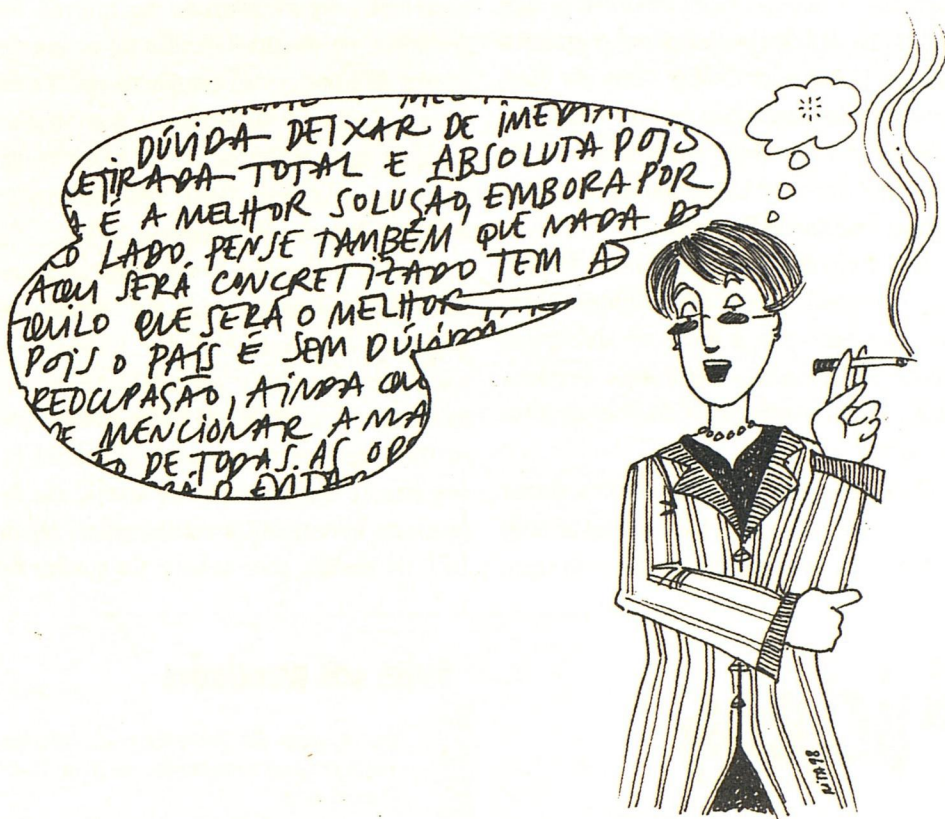 DÚVIDA DEIXAR DE IMEDIAT
RETIRADA TOTAL E ABSOLUTA POIS
A É A MELHOR SOLUÇÃO, EMBORA POR
O LADO. PENSE TAMBÉM QUE NADA D
AQUI SERÁ CONCRETIZADO TEM A
QUILO QUE SERÁ O MELHOR
POIS O PAÍS É SEM DÚVIDA
REOCUPASÃO, AINDA QU
DE MENCIONAR A MA
ÃO DE TODAS. AS OP
O EVITAR
NITA 98